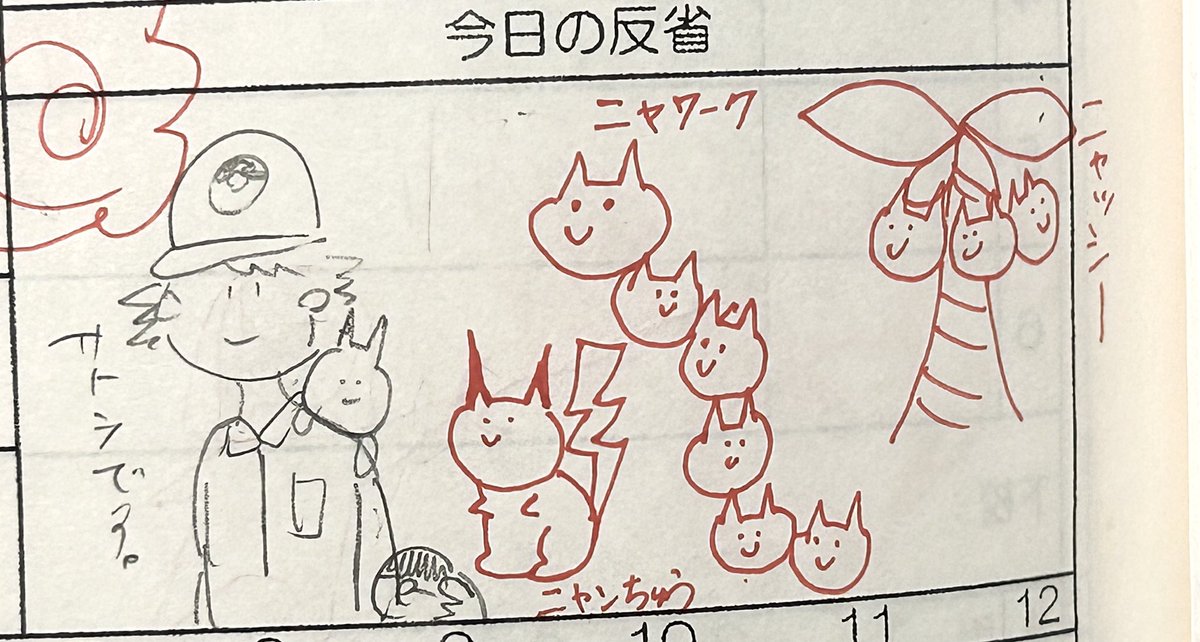 今日の反省
ニャワーク
ニャッシー
サトシです。
ニャンちゅう
10 11 12